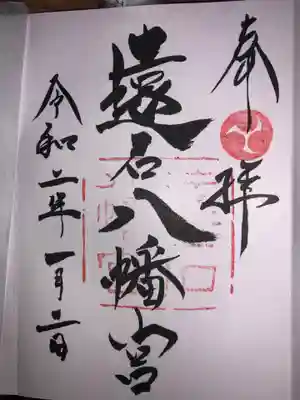 奉拝
遠石八幡宮
令和二年一月二日